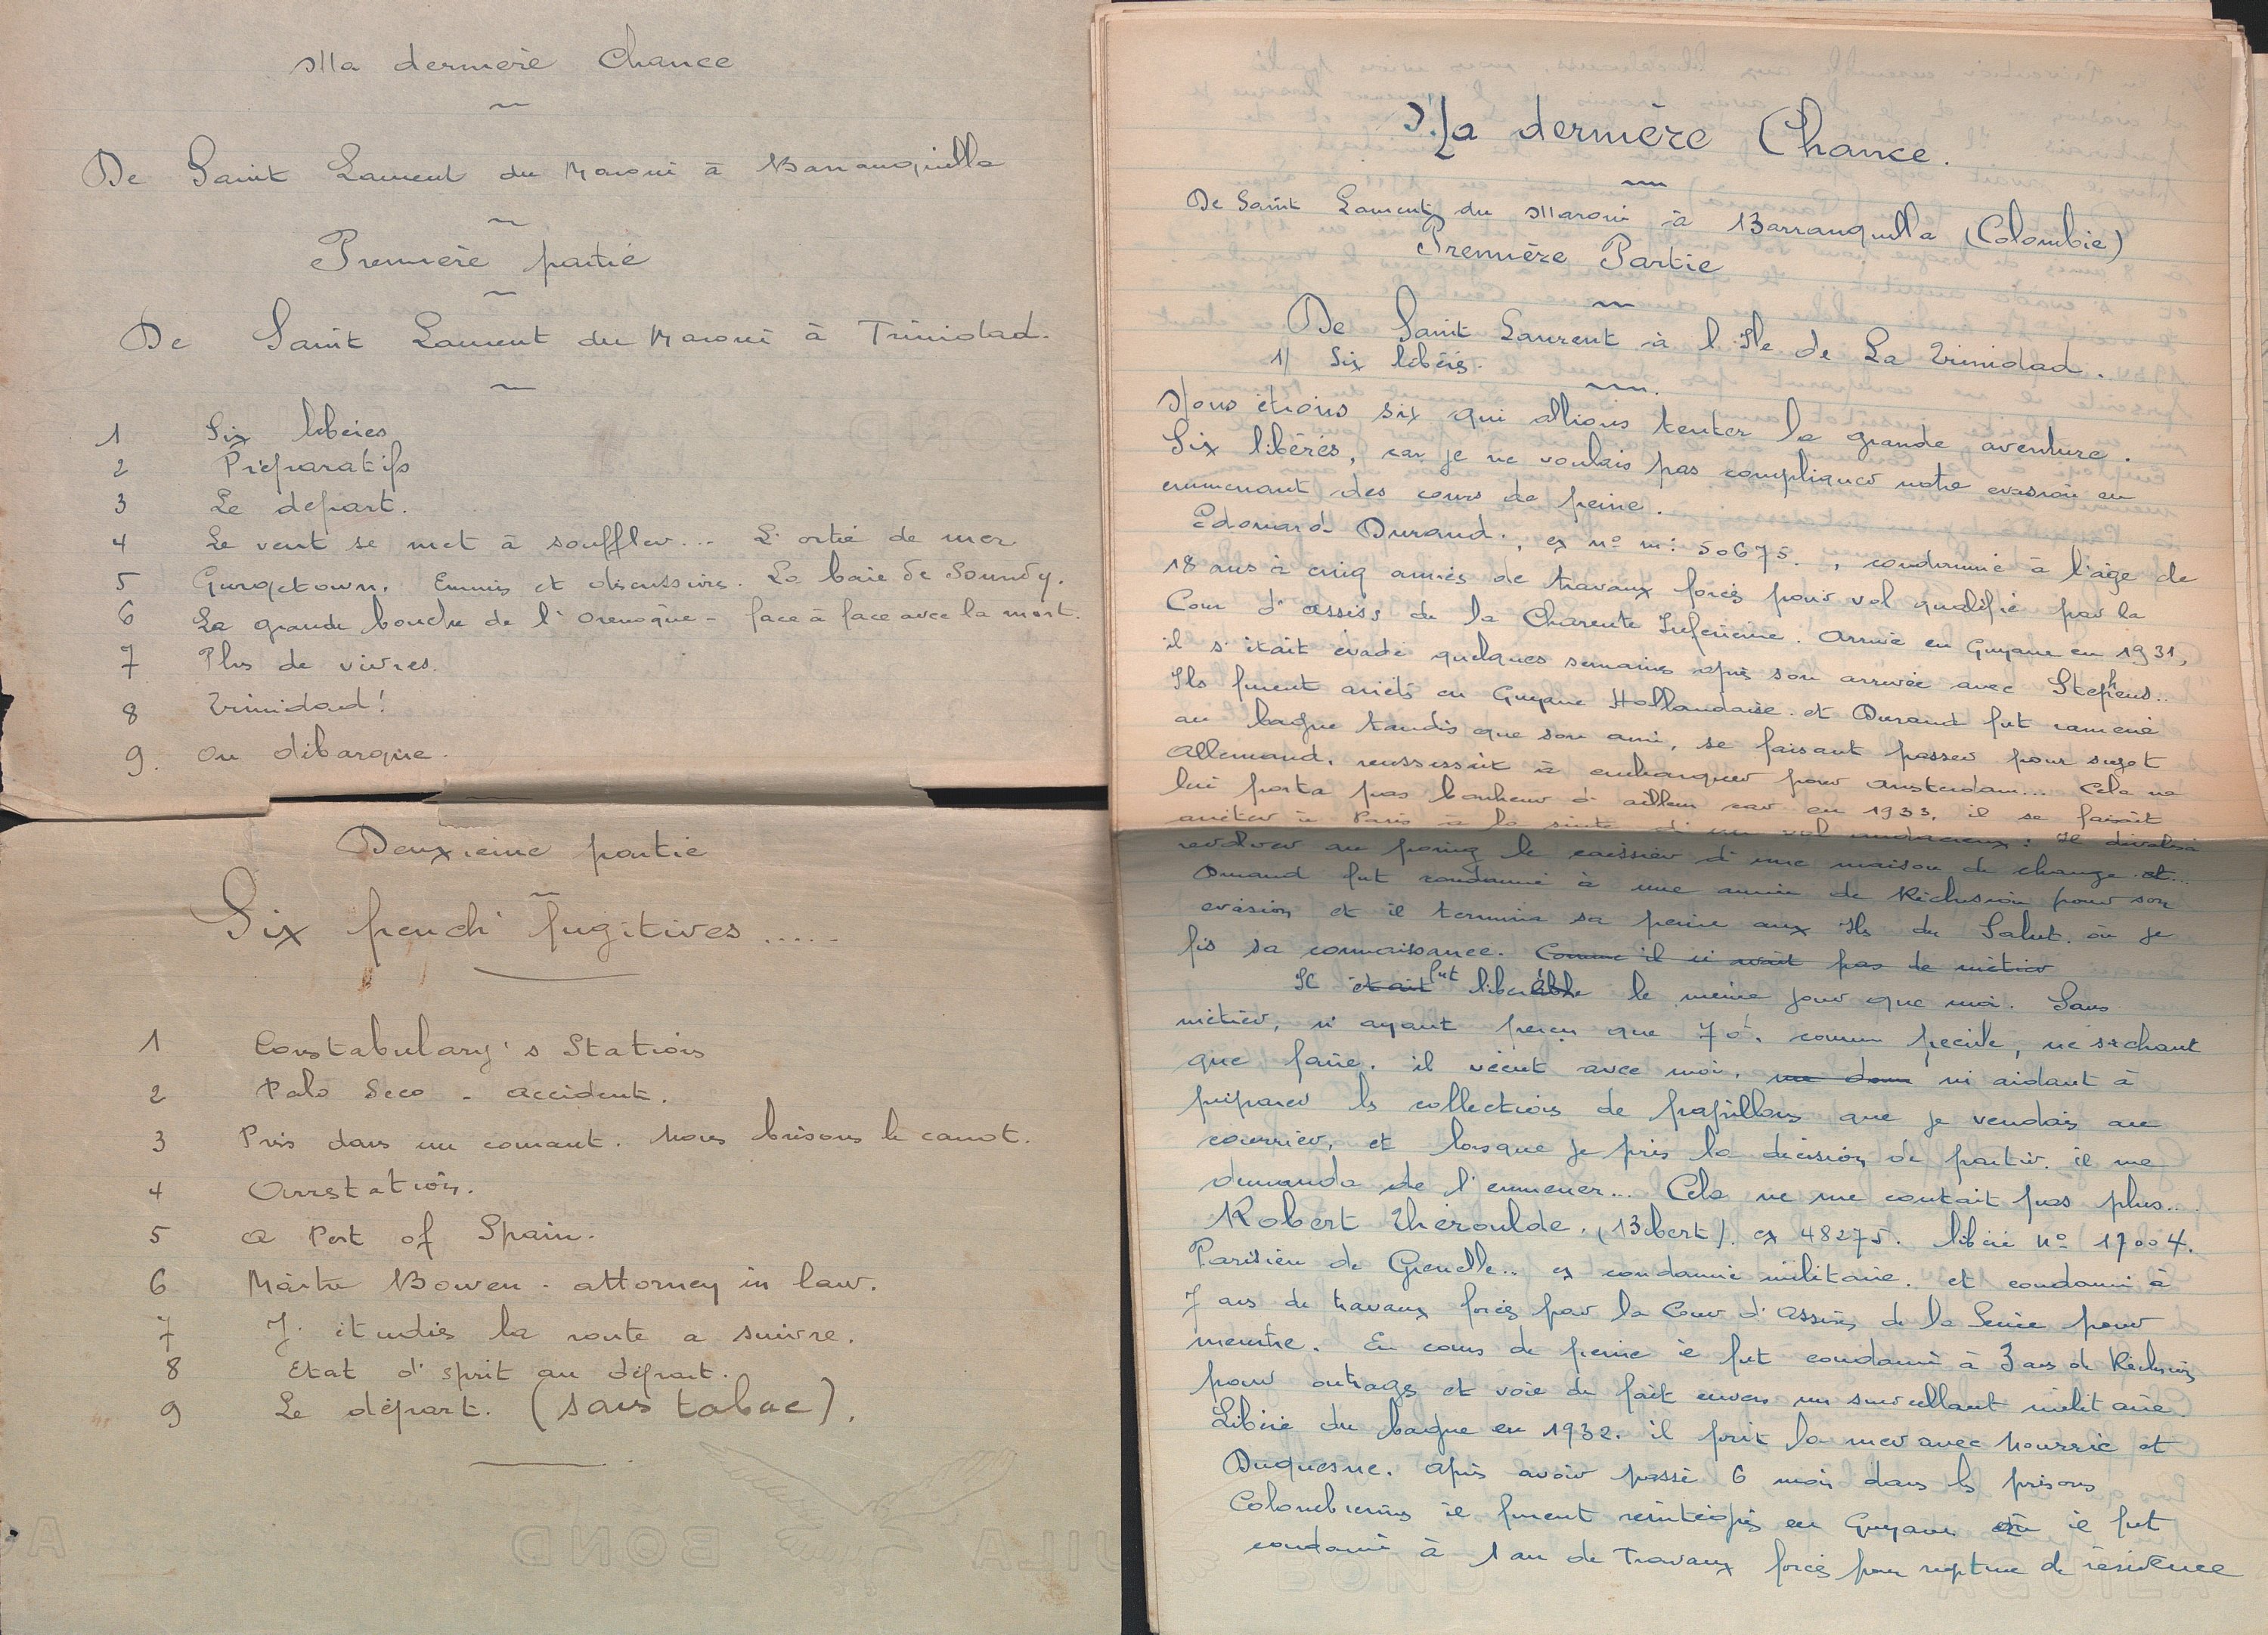 Ma dernière Chance
De Saint Laurent du Maroni à Barranquilla
Première partie
De Saint Laurent du Maroni à Trinidad.
1 Six libérés
2 Préparatifs
3 Le départ.
4 Le vent se met à souffler... L'ortie de mer
5 Gorgetown. Ennuis et discussions. La baie de Soundy.
6 La grande bouche de l'Orenoque - face à face avec la mort.
7 Plus de vivres.
8 Trinidad!
9. On débarque.
Deuxieme partie
Six french fugitives.....
1 Constabulary's Station
2 Palo Seco - accident.
3 Pris dans un courant. Nous brisons le canot.
4 Arrestation.
5 A Port of Spain.
6 Maitre Bowen - attorney in law.
7 J'étudie la route a suivre.
8 Etat d'sprit au départ.
9 Le départ. (sans tabac).
AQUILA BOND
Ma dernière Chance.
De Saint Laurent du Maroni à Barranquilla (Colombie)
Première Partie
De Saint Laurent à l'Ile de La Trinidad.
1/ Six libérés.
Nous étions six qui allions tenter la grande aventure.
Six libérés, car je ne voulais pas compliquer notre evasion en
emmenant des cours de peine.
Edouard Durand., ex no m: 50675., condamné à l'âge de
18 ans à cinq années de travaux forcés pour vol qualifié par la
Cour d'assises de la Charente Inferieure. Arrivé en Guyane en 1931,
il s'était évadé quelques semaines après son arrivée avec Stephens..
Ils furent arrêtés en Guyane Hollandaise. et Durand fut ramené
au bagne tandis que son ami, se faisant passer pour sujet
Allemand, reussissait à embarquer pour Amsterdam... Cela ne
lui porta pas bonheur d'ailleurs car en 1933, il se faisait
arrêter à Paris à la suite d'un vol audacieux: Il dévalisa
revolver au poing le caissier d'une maison de change. et...
Durand fut condamné à une année de Réclusion pour son
evasion et il termina sa peine aux Iles du Salut. où je
fis sa connaissance. Comme il n'avait pas de métier
Il était fut libérable le meme jour que moi. Sans
métier, n'ayant perçu que 70f. comme pecule, ne sachant
que faire. il vécut avec moi, m'aidant à
préparer les collections de papillons que je vendais au
courrier, et lorsque je pris la décision de partir. il me
demanda de l'emmener... Cela ne me coutait pas plus...
Robert Théroulde. (Bébert). ex 48275. libéré No 17004.
Parisien de Grenelle.. ex condamné militaire. et condamné à
7 ans de travaux forcés par la Cour d'Assises de la Seine pour
meurtre. En cours de peine il fut condamné à 3 ans de Réclusion
pour outrages et voie de fait envers un surveillant militaire.
Libéré du bagne en 1932. il prit la mer avec Nourrié et
Duquesne. Après avoir passé 6 mois dans les prisons
Colombiennes il furent réintégrés en Guyane où il fut
condamné à 1 an de Travaux forcés pour rupture de résidence